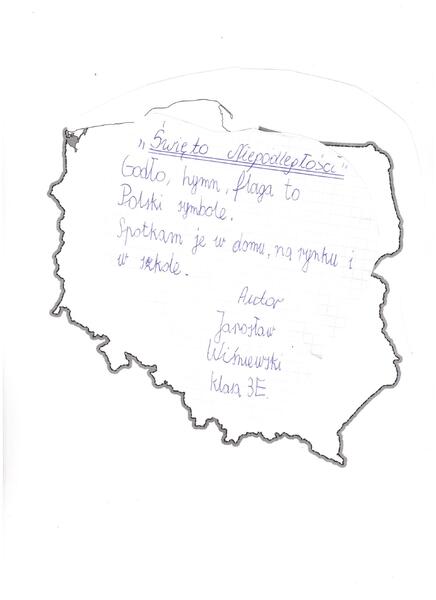 „Święto Niepodległości"
Godło, hymn, flaga to
Polski symbole.
Spotkam je w domu, na rynku i
w szkole.
Autor
Jarosław
Wiśniewski
klasa 3E.